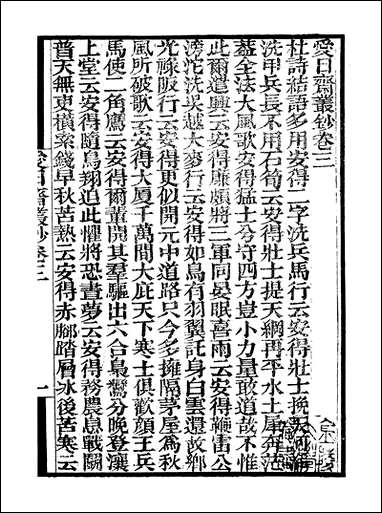 愛日齋叢鈔卷三
杜詩結語多用安得二字洗兵馬行云安得壯士挽天河淨
洗甲兵長不用石筍云安得壯士提天綱再平水土犀奔茫
蓋全法大風歌安得猛士兮守四方意小力量敢道哉不惟
此爾遣興云安得廉頗將三軍同晏眠喜雨云安得鞭雷公
滂沱洗吳越大麥行云安得如鳥有羽翼託身白雲還故鄉
光祿阪行云安得更似開元中道路只今多擁隔茅屋為秋
風所破歌云安得大廈千萬間大庇天下寒士俱歡顏王兵
馬使二角鷹云安得爾輩開其羣驅出六合梟鸞分晚登瀼
上堂云安得隨鳥翔迫此懼將恐晝夢云安得務農息戰鬭
普天無吏橫索錢早秋苦熱云安得赤腳踏層冰後苦寒云
愛日齋叢鈔卷三
一